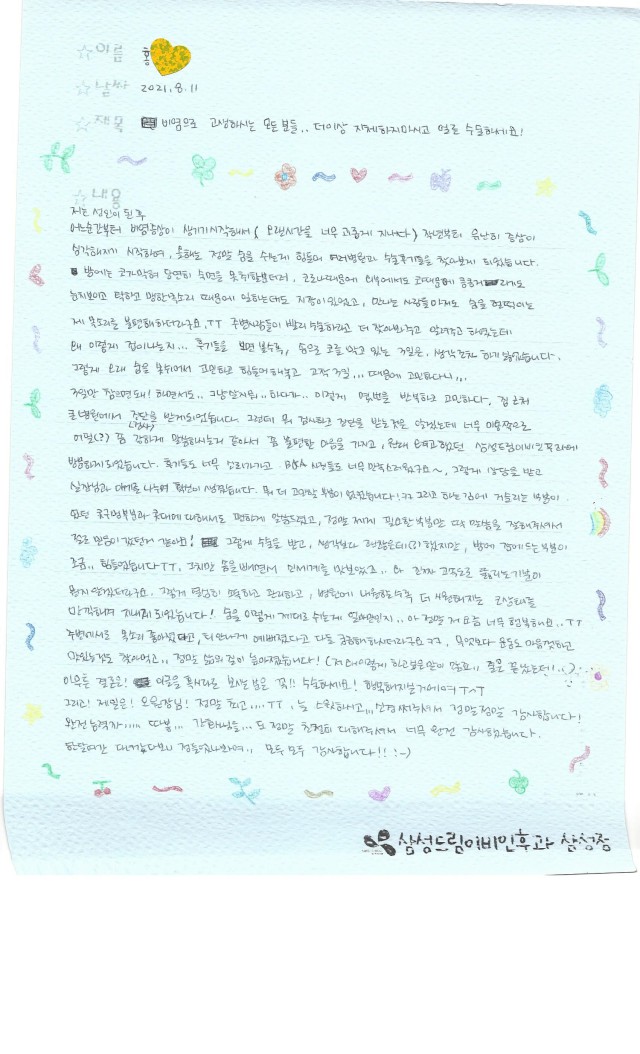 ☆이름 홍
☆날짜 2021.8.11
☆제목 비염으로 고생하시는 모든분들.. 더이상 지체하지마시고 얼른 수술하세요!
☆내용
저는 성인이 된 후
어느순간부터 비염증상이 생기기 시작해서 ( 오랜시간을 너무 괴롭게 지내다 ) 작년부터 유난히 증상이
심각해지기 시작하여, 올해는 정말 숨을 쉬는게 힘들어 여러병원과 수술후기들을 찾아보게 되었습니다.
밤에는 코가막혀 당연히 숙면을 못취할뿐더러, 코로나때문에 외부에서도 코때문에 킁킁거리고
눈치보이고 탁하고 맹맹한목소리 때문에 일하는데도 지장이있었고, 만나는 사람들마저도 숨을 헐떡이는
제 목소리를 불편해하더라구요,TT 주변사람들이 빨리 수술하라고 더 찾아봐주고 알려주고 하였는데
왜 이렇게 겁이나는지... 후기들을 보면 볼수록, 솜으로 코를 막고 있는 3일은, 생각조차 하기 싫었습니다.
그렇게 오래 숨을 못쉬어서 고민하고 힘들어 해놓고 고작 3일... 때문에 고민하다니...
3일만 참으면돼! 하면서도.. 그냥 살지뭐..하다가.. 이렇게 몇번을 반복하고 고민하다, 집 근처
큰병원에서 진단을 받게되었습니다. 그런데 뭐 검사하고 진단을 받는것은 당연한데 너무 의무적으로
어필(?) 좀 강하게 말씀하시는거 같아서 좀 불편한 마음을 가지고, 원래 눈여겨했던 삼성드림이비인후과에
방문하게되었습니다. 후기들도 너무 소리가가고 B&A 사진들도 너무만족스러웠구요~, 그렇게 상담을 받고
실장님과 대화를 나누며 확신이 생겼습니다. 뭐 더 고민할 부분이 없었습니다! ㅋㅋ 그리고 하는김에 거슬리는 부분이
있던 콧구멍부분과 콧대에 대해서도 편하게 말씀드렸고, 정말 제게 필요한 부분만 딱 말씀을 잘해주셔서
절로 믿음이 갔던거 같아요! 그렇게 수술을 받고, 생각보다 괜찮은데(?) 했지만, 밤에 잠에드는 부분이
조금.. 힘들었습니다TT, 그치만 솜을 빼면서 신세계를 맛보았죠.. 와 진짜 고속도로 뚫리는기분이
뭔지 알겠더라구요. 그렇게 열심히 소독하고 관리하고, 병원에 내원하면할수록 더 시원해지는 코상태를
만끽하며 지내게 되었습니다! 숨을 이렇게 제대로 쉬는게 얼마만인지.. 아 정말 저 요즘 너무 행복해요..TT
주변에서도 목소리 좋아졌다고, 티안나게 예뻐졌다고 다들 궁금해하시더라구요 ㅋㅋ, 무엇보다 운동도 마음껏하고
맛있는것도 찾아먹고.. 정말 삶의 질이 높아졌습니다! ( 저 왜이렇게 하고싶은말이 많죠.. 줄을 꽉찼는데!..)
아무튼 결론은! 이글을 혹시라도 보시는 분은 꼭!! 수술하세요! 행복해지실거에여 T^T
그리고! 제일은! 원장님! 정말 최고....TT, 늘 소원하시고... 신경써주셔서 정말정말 감사합니다!
완전 능력자..... 따봉... 간호사님들... 도 정말 친절히 대해주셔서 너무 완전 감사했습니다.
한달여간 다녀갔다보니 정들었나봐여.. 모두 모두 감사합니다!! :-)
삼성드림이비인후과 삼성점